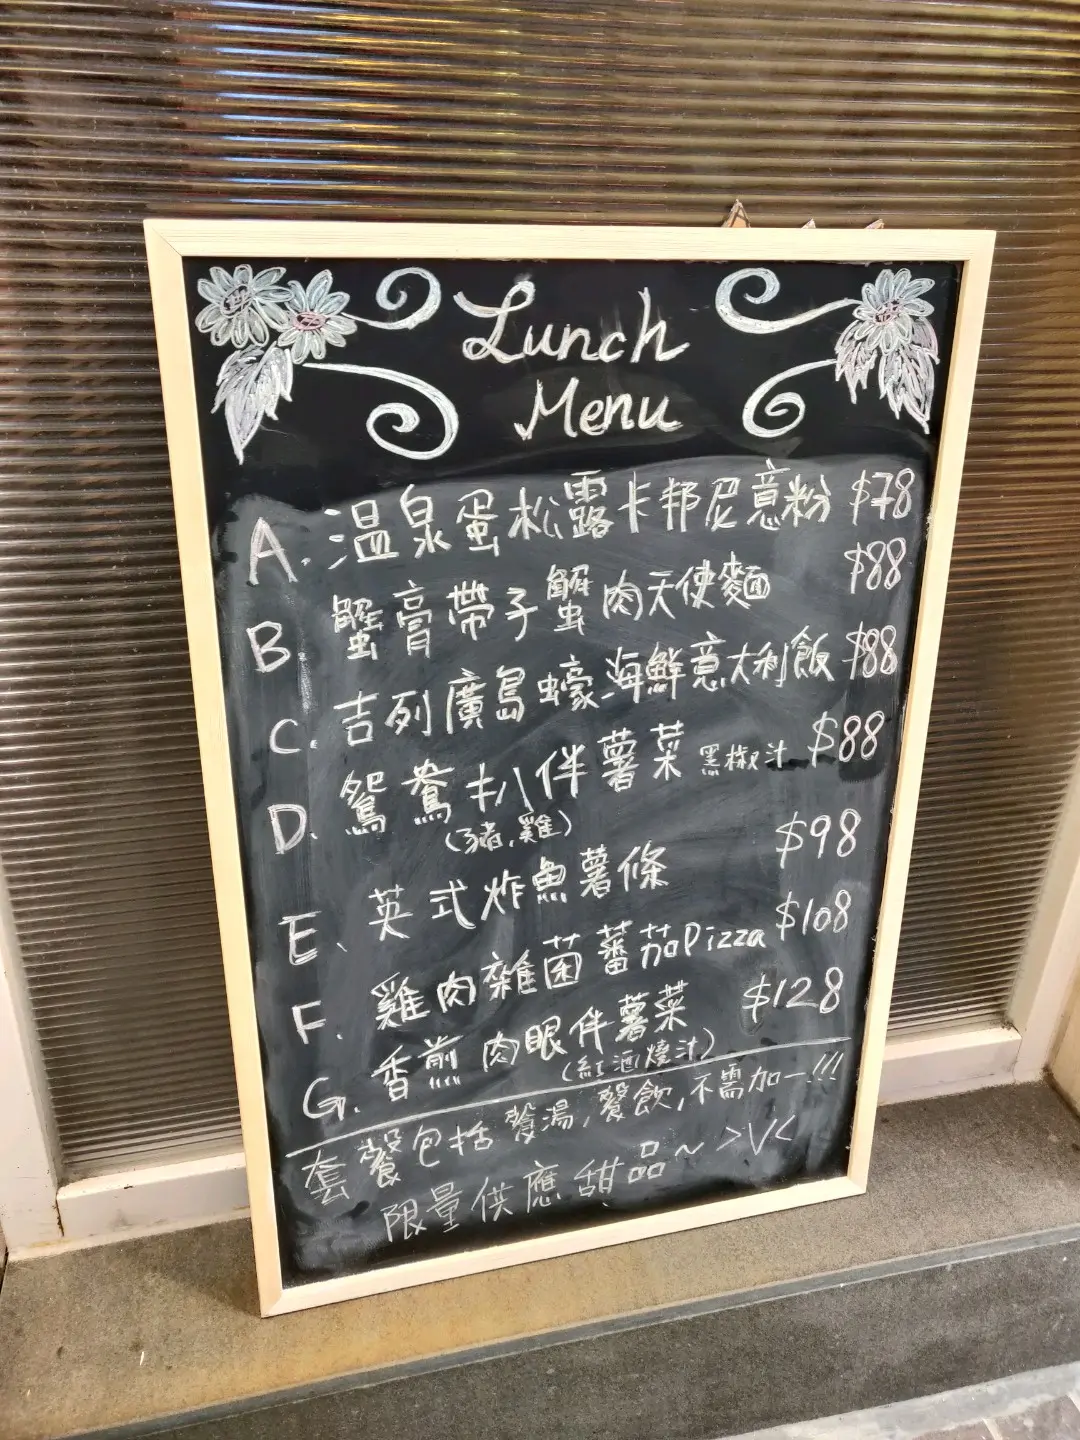 Lunch
Menu
A. 温泉蛋松露卡邦尼意粉 $78
B. 蟹膏帶子蟹肉天使麵 $88
C. 吉列廣島蠔海鮮意大利飯 $88
D. 鴛鴦扒伴薯菜 黑椒汁 $88
(豬,雞)
E、英式炸魚薯條 $98
F. 雞肉雜菌蕃茄Pizza $108
G. 香煎肉眼伴薯菜 $128
(紅酒燒汁)
套餐包括餐湯,餐飲,不需加一!!!
限量供應甜品~ >V<